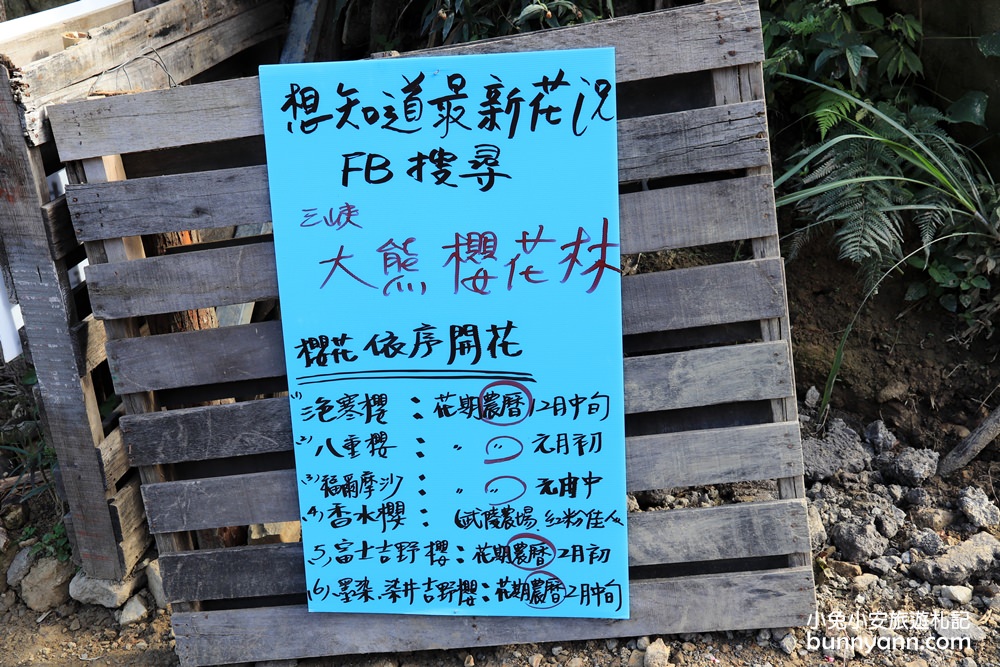 想知道最新花況
FB搜尋
三峽
大熊櫻花林
櫻花依序開花
(1) 絕寒櫻：花期農曆12月中旬
(2) 八重櫻：〃 〃 元月初
(3) 福爾摩沙：〃 〃 元月中
(4) 香水櫻：(武陵農場.紅粉佳人)
5, 富士吉野櫻：花期農曆2月初
(6), 墨染.染井吉野櫻：花期農曆2月中旬
小兔小安旅遊札記
bunnyann.com